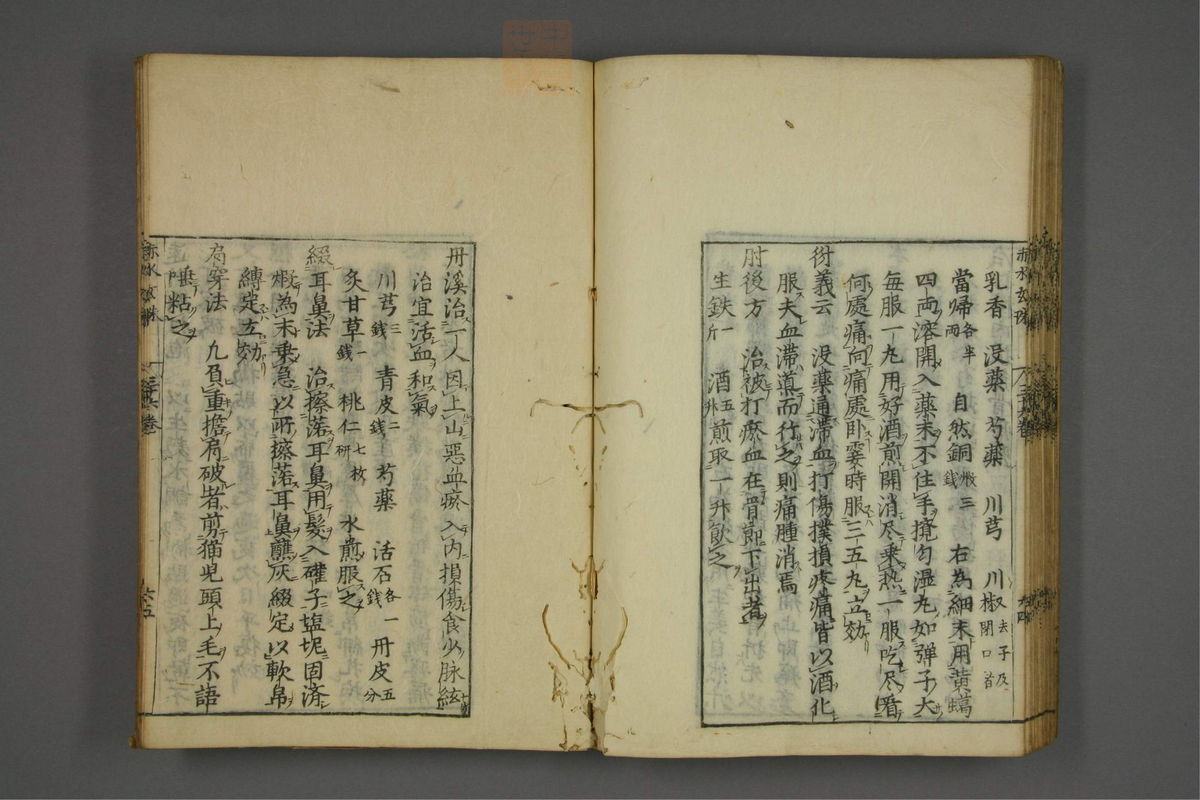 乳香　没藥　芍藥　川芎　川椒去子及閉口者
當帰各半両　自然銅煆三錢　右為細末用黄蝋
四両溶開入藥末不住手攪匀湿丸如弾子大
毎服一丸用好酒煎開消尽乗熱一服吃尽看
何處痛向痛處卧霎時服三五丸立効
衍義云　没藥通滞血打傷撲損疼痛皆以酒化
服夫血滞道而行之則痛腫消焉
肘後方　治被打瘀血在骨節下出者
生鉄一斤　酒五升煎取一升飲之
丹溪治一人因上山惡血瘀入内損傷食少脉絃
治宜活血和氣
川芎三錢　青皮二錢　芍薬　活石各一錢　丹皮五分
炙甘草一錢　桃仁七枚研　水煎服之
綴耳鼻法　治擦落耳鼻用髮入確子塩坭固済
煆為末乗急以所擦落耳鼻蘸灰綴定以軟帛
縛定立効
肩穿法　凡負重擔肩破者剪猫児頭上毛不語
唾粘之